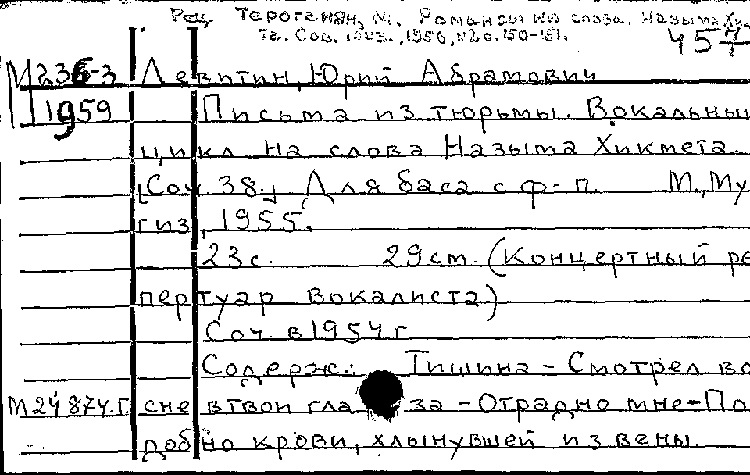 Рец. Тероганян, М. Романсы на слова Назыма Хик
Тв. Сов. муз., 1956, №2 с. 150-151.
457
М235-3 Левитин, Юрий Абрамович
1959 Письма из тюрьмы. Вокальный
цикл на слова Назыма Хикмета.
[Соч. 38.] Для баса с ф-п. М., Му
гиз, 1955.
23 с. 29 см. (Концертный ре
пертуар вокалиста)
Соч. в 1954 г
Содерж.: Тишина - Смотрел во
М24874г. сне в твои глаза - Отрадно мне - По
добно крови, хлынувшей из вены.